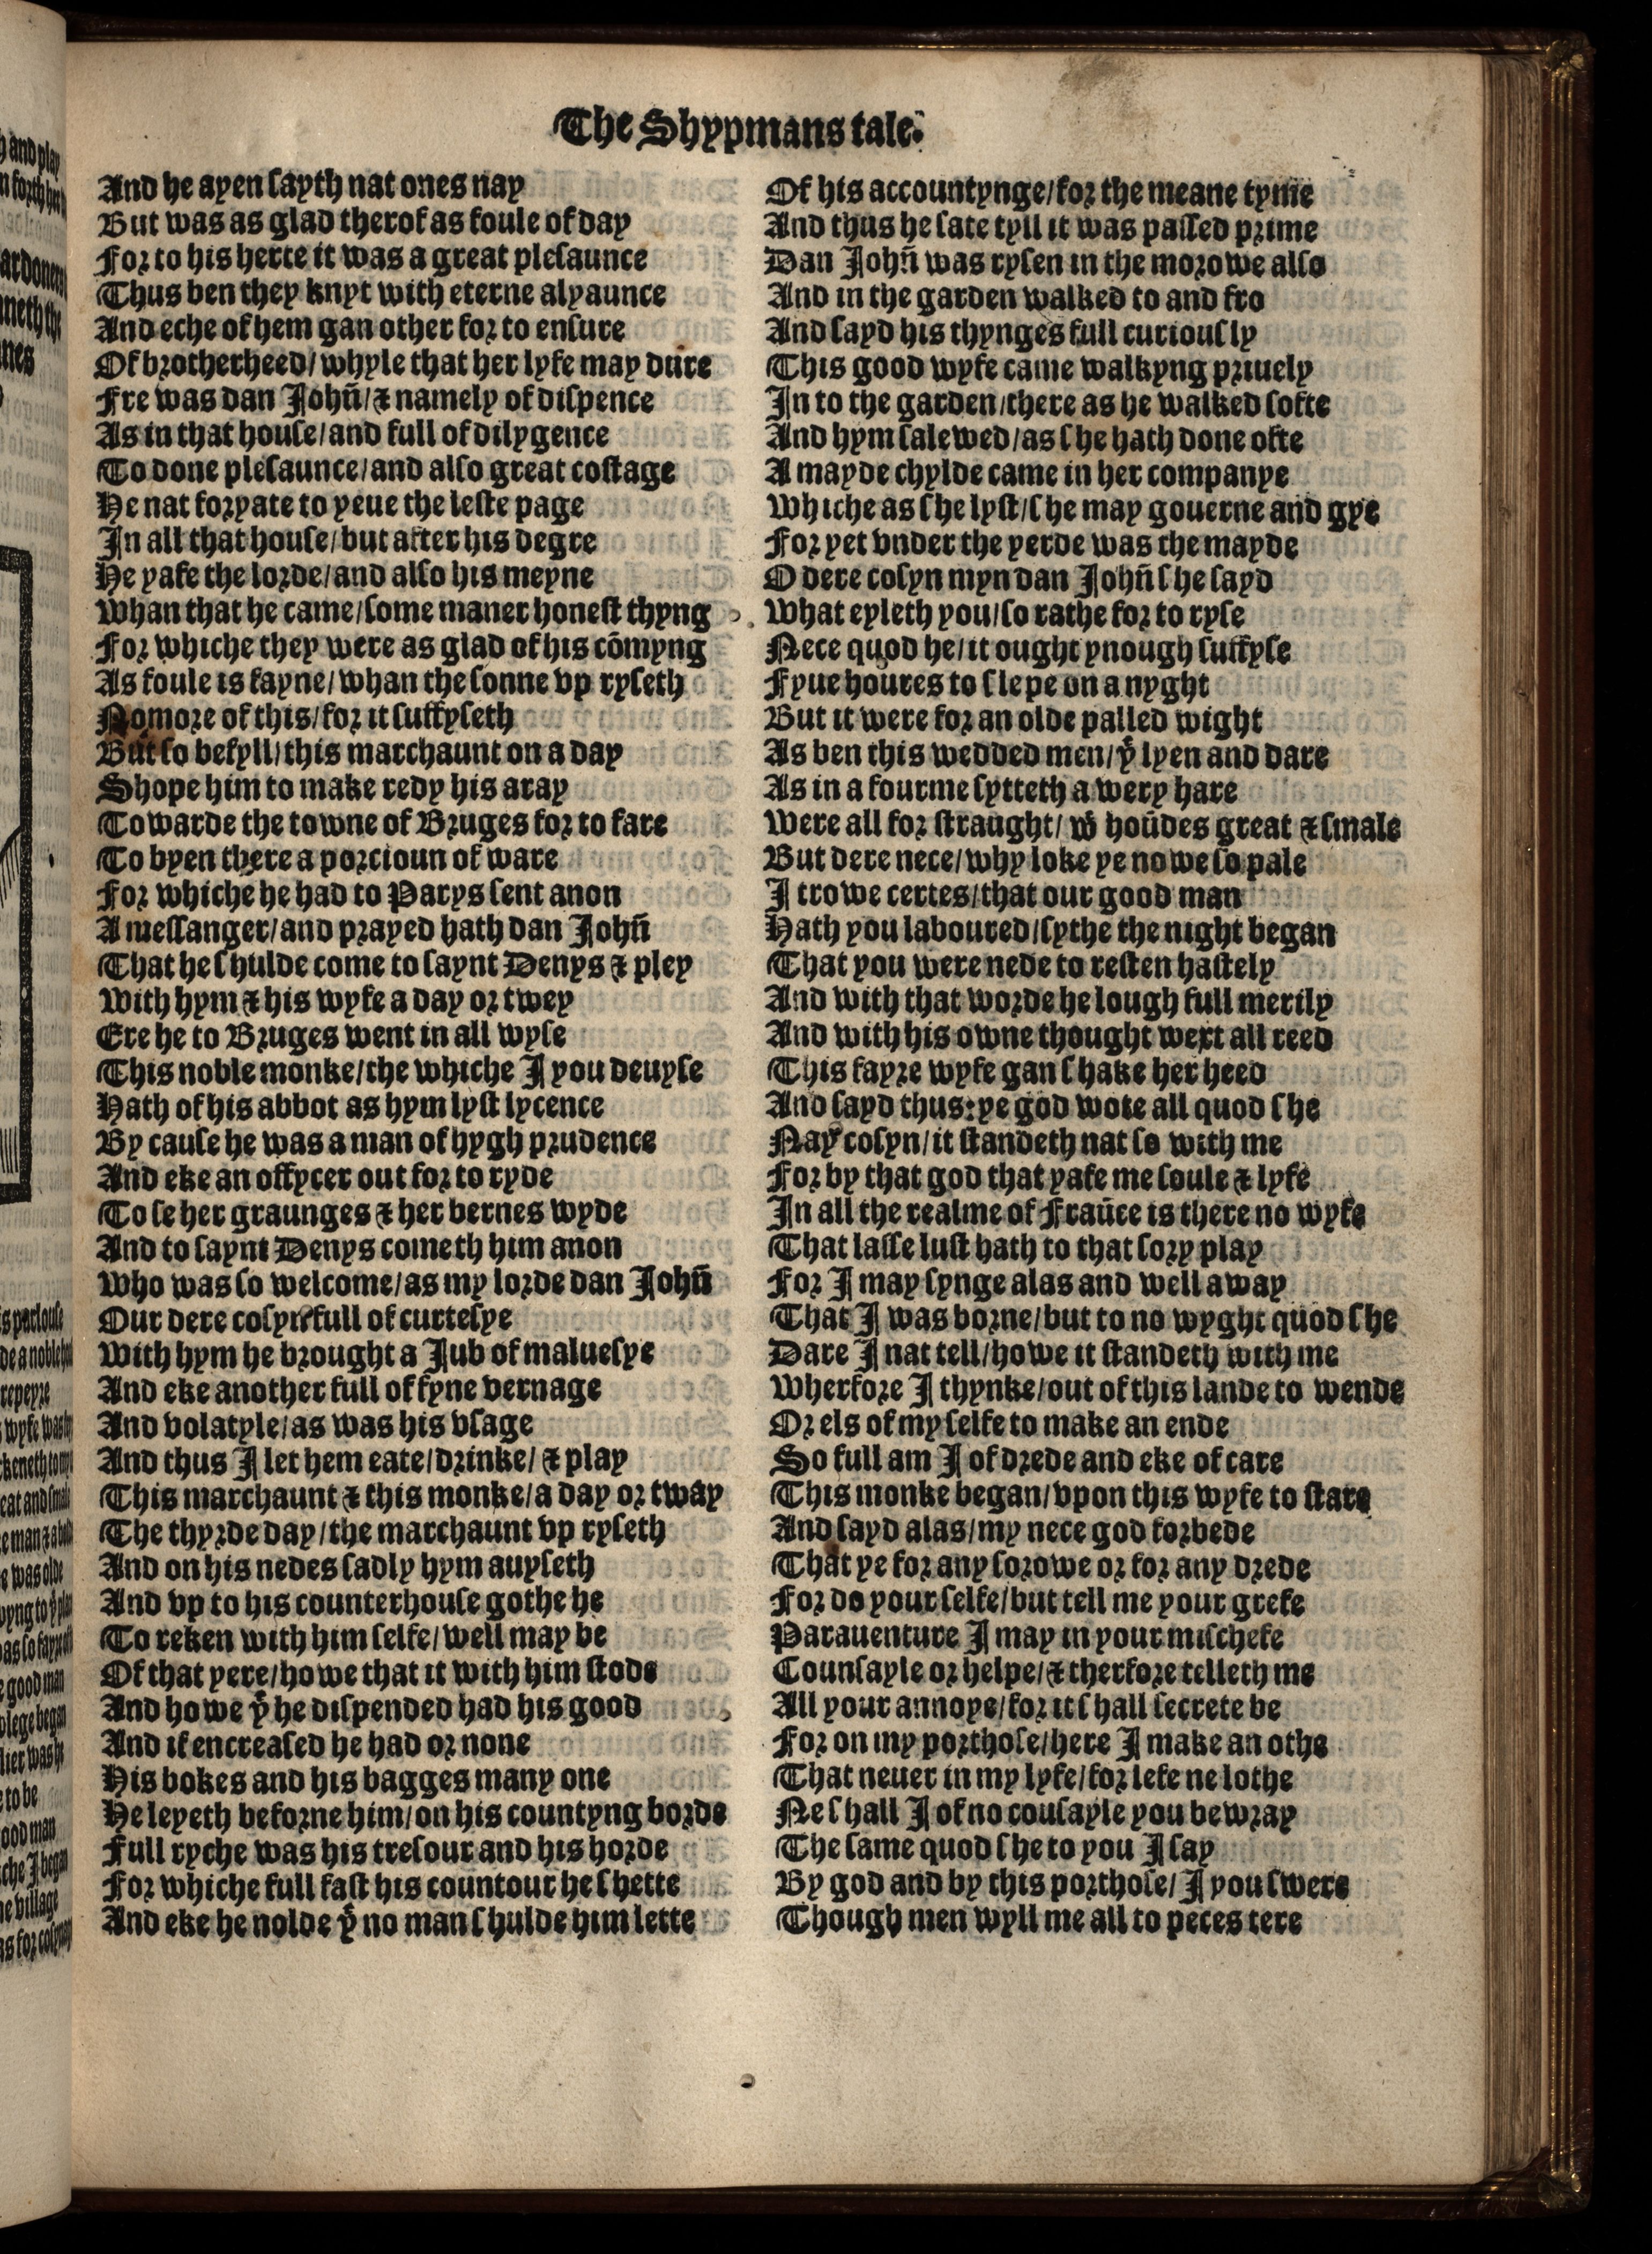 The Shypmans tale.
And he ayen sayth nat ones nay
But was as glad therof as foule of day
For to his herte it was a great plesaunce
Thus ben they knyt with eterne alyaunce
And eche of hem gan other for to ensure
Of brotherheed/whyle that her lyfe may dure
Fre was dan Johñ/& namely of dispence
As in that house/and full of dilygence
To done plesaunce/and also great costage
He nat foryate to yeue the leste page
In all that house/but after his degre
He yafe the lorde/and also his meyne
Whan that he came/some maner honest thyng
For whiche they were as glad of his cõmyng
As foule is fayne/whan the sonne vp ryseth
Nomore of this/for it suffyseth
But so befyll/this marchaunt on a day
Shope him to make redy his aray
Towarde the towne of Bruges for to fare
To byen there a porcioun of ware
For whiche he had to Parys sent anon
A messanger/and prayed hath dan Johñ
That he shulde come to saynt Denys & pley
With hym & his wyfe a day or twey
Ere he to Bruges went in all wyse
This noble monke/the whiche I you deuyse
Hath of his abbot as hym lyst lycence
By cause he was a man of hygh prudence
And eke an offycer out for to ryde
To se her graunges & her bernes wyde
And to saynt Denys cometh him anon
Who was so welcome/as my lorde dan Johñ
Our dere cosyn/full of curtesye
With hym he brought a Jub of maluesye
And eke another full of fyne vernage
And volatyle/as was his vsage
And thus I let hem eate/drinke/& play
This marchaunt & this monke/a day or tway
The thyrde day/the marchaunt vp ryseth
And on his nedes sadly hym auyseth
And vp to his counterhouse gothe he
To reken with him selfe/well may be
Of that yere/howe that it with him stode
And howe yͭ he dispended had his good
And if encreased he had or none
His bokes and his bagges many one
He leyeth beforne him/on his countyng borde
Full ryche was his tresour and his horde
For whiche full fast his countour he shette
And eke he nolde yͭ no man shulde him lette
Of his accountynge/for the meane tyme
And thus he sate tyll it was passed prime
Dan Johñ was rysen in the morowe also
And in the garden walked to and fro
And sayd his thynges full curiously
This good wyfe came walkyng priuely
In to the garden/there as he walked softe
And hym salewed/as she hath done ofte
A mayde chylde came in her companye
Whiche as she lyst/she may gouerne and gye
For yet vnder the yerde was the mayde
O dere cosyn myn dan Johñ she sayd
What eyleth you/so rathe for to ryse
Nece quod he/it ought ynough suffyse
Fyue houres to slepe on a nyght
But it were for an olde palled wight
As ben this wedded men/yͭ lyen and dare
As in a fourme sytteth a wery hare
Were all for straught/wͭ hoũdes great & smale
But dere nece/why loke ye nowe so pale
I trowe certes/that our good man
Hath you laboured/sythe the night began
That you were nede to resten hastely
And with that worde he lough full merily
And with his owne thought wext all reed
This fayre wyfe gan shake her heed
And sayd thus:ye god wote all quod she
Nay cosyn/it standeth nat so with me
For by that god that yafe me soule & lyfe
In all the realme of Fraũce is there no wyfe
That lasse lust hath to that sory play
For I may synge alas and well away
That I was borne/but to no wyght quod she
Dare I nat tell/howe it standeth with me
Wherfore I thynke/out of this lande to wende
Or els of my selfe to make an ende
So full am I of drede and eke of care
This monke began/vpon this wyfe to stare
And sayd alas/my nece god forbede
That ye for any sorowe or for any drede
For do your selfe/but tell me your grefe
Parauenture I may in your mischefe
Counsayle or helpe/& therfore telleth me
All your annoye/for it shall secrete be
For on my porthose/here I make an othe
That neuer in my lyfe/for lefe ne lothe
Ne shall I of no cousayle you bewray
The same quod she to you I say
By god and by this porthose/I you swere
Though men wyll me all to peces tere